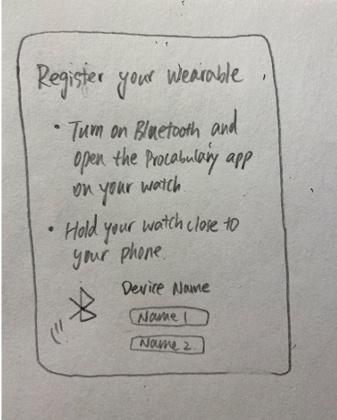 Register your Wearable
• Turn on Bluetooth and
open the Procabulary app
on your watch.
• Hold your watch close to
your phone.
Device Name
Name 1
Name 2